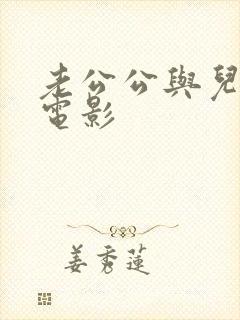 老公公與兒
電影
姜秀蓮